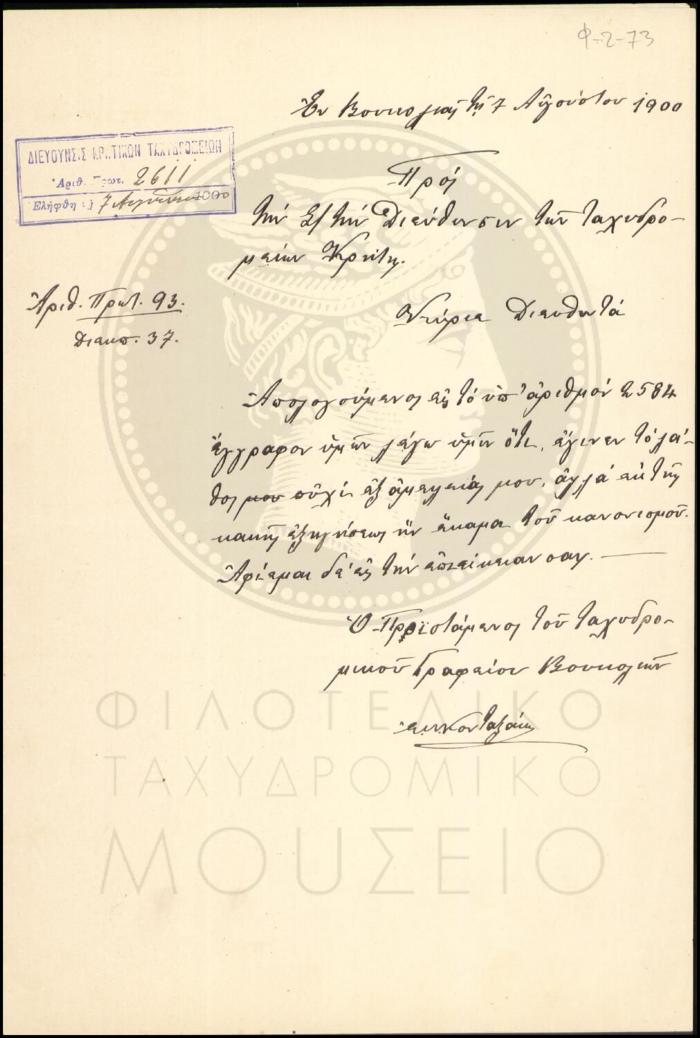 Φ-2-73
Ἐν Βουκολιαῖς τῇ 7 Αὐγούστου 1900
ΔΙΕΥΘΥΝΣΙΣ ΚΡΗΤΙΚΩΝ ΤΑΧΥΔΡΟΜΕΙΩΝ
Ἀριθ. Πρωτ. 2611
Ἐλήφθη τῇ 7 Αὐγούστου 1900
Πρὸς
τὴν Σ/ τὴν Διεύθυνσιν τῶν ταχυδρο-
μείων Κρήτης.
Ἀριθ. Πρωτ. 93.
Διεκπ. 37.
Κύριε Διευθυντά
Ἀπολογούμενος εἰς τὸ ὑπ' ἀριθμὸν 2584
ἔγγραφον ὑμῶν λέγω ὑμῖν ὅτι, ἔγινεν τὸ λά-
θος μου οὐχὶ ἐξ ἀμελείας μου, ἀλλὰ ἐκ τῆς
κακῆς ἐξηγήσεως ἣν ἔκαμα τοῦ κανονισμοῦ.
Ἀφίεμαι δὲ εἰς τὴν ἐπιείκειαν σας.
Ὁ Προϊστάμενος τοῦ ταχυδρο-
μικοῦ Γραφείου Βουκολιῶν
ΦΙΛΟΤΕΛΙΚΟ
ΤΑΧΥΔΡΟΜΙΚΟ
ΜΟΥΣΕΙΟ